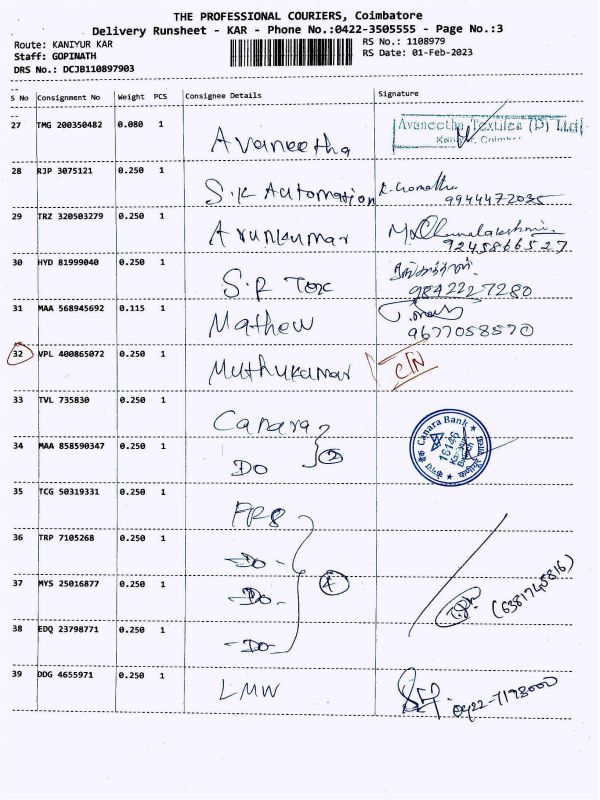 THE PROFESSIONAL COURIERS, Coimbatore
Delivery Runsheet - KAR - Phone No.:0422-3505555 - Page No.:3
Route: KANIYUR KAR RS No.: 1108979
Staff: GOPINATH RS Date: 01-Feb-2023
DRS No.: DCJB110897903
S No Consignment No Weight PCS Consignee Details Signature
27 TMG 200350482 0.080 1 Avaneetha Avaneetha Textiles (P) Ltd
28 RJP 3075121 0.250 1 S.K Automation 9944472035
29 TRZ 320503279 0.250 1 Arunkumar 9245866527
30 HYD 81999040 0.250 1 S.R Tex 9842227280
31 MAA 568945692 0.115 1 Mathew 9677058570
32 VPL 400865072 0.250 1 Muthukumar C/N
33 TVL 735830 0.250 1 Canara Canara Bank 16146
34 MAA 858590347 0.250 1 Do 2
35 TCG 50319331 0.250 1
36 TRP 7105268 0.250 1 -Do-
37 MYS 25016877 0.250 1 -Do- 4 (6381745816)
38 EDQ 23798771 0.250 1 -Do-
39 DDG 4655971 0.250 1 LMW 0422-7198000